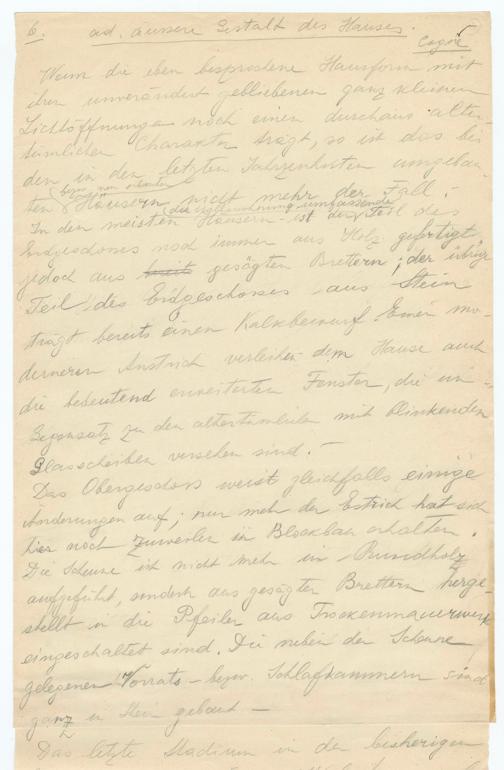 6. ad. äussere Gestalt des Hauses.
Wenn die eben besprochene Hausform mit
ihren unverändert gebliebenen ganz kleinen
Lichtöffnungen noch einen durchaus alter-
tümlichen Charakter trägt, so ist das bei
den in den letzten Jahrzehnten umgebau-
ten Häusern nicht mehr der Fall.-
(bezw. neu erbauten)
In den meisten Häusern ist der Teil des
(die umfassende
Erdgeschosses noch immer aus Holz gefertigt,
jedoch aus breits gesägten Brettern; der übrige
Teil des Erdgeschosses aus Stein
trägt bereits einen Kalkbewurf. Einen mo-
derneren Anstrich verleihen dem Hause auch
die bedeutend erweiterten Fenster, die im
Gegensatz zu den altertümlichen mit blinkenden
Glasscheiben versehen sind.-
Das Obergeschoss weist gleichfalls einige
Änderungen auf; nur mehr der Estrich hat sich
hier noch zuweilen in Blockbau erhalten.
Die Scheune ist nicht mehr in Rundholz
aufgeführt, sondern aus gesägten Brettern herge-
stellt in die Pfeiler aus Trockenmauerwerk
eingeschaltet sind. Die neben der Scheune
gelegenen Vorrats- bezw. Schlafkammern sind
ganz in Stein gebaut -
Das letzte Stadium in der bisherigen